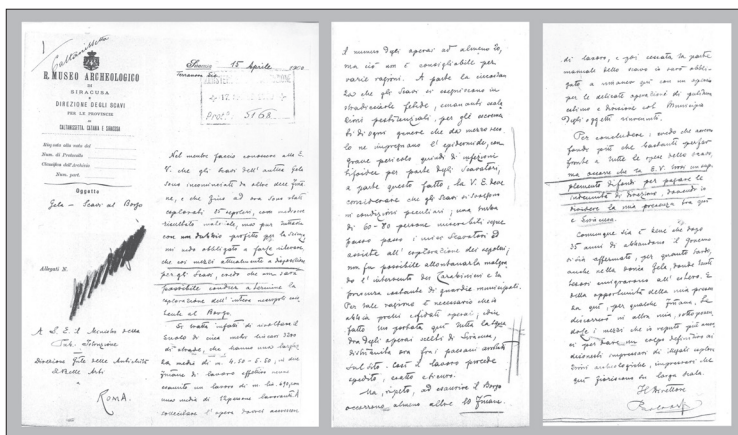 Caltanissetta
R. MUSEO ARCHEOLOGICO
DI
SIRACUSA
E
DIREZIONE DEGLI SCAVI
PER LE PROVINCIE
DI
CALTANISSETTA, CATANIA E SIRACUSA
Risposta alla nota del
Num. di Protocollo
Classifica dell'Archivio
Num. part.
Oggetto
Gela – Scavi al Borgo
Allegati N.
A S. E. il Ministro della
Pub. Istruzione
Direzione Gle delle Antichità
e Belle Arti
ROMA.
15 Aprile
Terranova
5168
Nel mentre faccio conoscere alla E.
V. che gli scavi dell'antica Gela
sono incominciati da oltre dieci gior-
ni, e che fino ad ora sono stati
esplorati 25 sepolcri, con mediocre
risultato materiale, ma pur tuttavia
con un discreto profitto per la scienza
mi vedo obbligato a farle rilevare,
che coi mezzi attualmente a disposizione
per gli scavi, credo che non sarà
possibile condurre a termine la
esplorazione dell'intera necropoli esi-
stente al Borgo.
Si tratta infatti di scandagliare il
suolo di circa metri lineari 3200
di strade, che hanno una larghez
za media di m. 4.50 - 5.50; in dieci
giornate di lavoro effettivo sono
I numero degli operai ad almeno 60,
ma ciò non è consigliabile per
varie ragioni. A parte la circostan
za che gli scavi si eseguiscono in
stradicciole fetide, emananti esala
zioni pestilenziali, per gli escrementi
bi di ogni genere che da mezzo seco
lo ne impregnano l'epidermide, con
grave pericolo quindi di infezioni
tifoidee per parte degli scavatori,
a parte questo fatto, la V. E. deve
considerare che gli scavi si svolgono
in condizioni peculiari; una turba
di 60-80 persone miserabili segue
passo passo i miei scavatori ed
assiste all'esplorazione dei sepolcri;
non fu possibile allontanarla malgra
do l'intervento dei Carabinieri e la
presenza costante di guardie municipali.
Per tale ragione è necessario che io
abbia pochi e fidati operai, ed in
fatto ho portato qui tutta la squa
dra degli operai scelti di Siracusa,
sul sito. Così il lavoro procede
spedito, esatto e sicuro.
Ma, ripeto, ad esaurire il Borgo
occorrono almeno altre 40 giornate
di lavoro, e poi cessata la parte
manuale dello scavo io sarò obbli-
gato a rimaner qui con un operaio
per le delicate operazioni di pulitura
e divisione col Municipio
degli oggetti rinvenuti.
Per concludere: credo che i
fondi posti che bastante per far
fronte a tutte le spese dello scavo,
ma occorre che la E. V. trovi un sup
plemento di fondi per pagare le
indennità di direzione, dovendo io
dividere la mia presenza tra qui
e Siracusa.
Comunque sia è bene che dopo
35 anni di abbandono il Governo
si sia affermato, per quanto tardi,
anche nella dovizia Gela, donde tanti
tesori emigrarono all'estero. E
della opportunità della mia presen
za qui, per qualche giornata, La
discorrerò in altra mia, sottoponen
dole i mezzi che io reputo più idonei
per dare un colpo definitivo ai
disonesti impresari di ilegali esplora
zioni archeologiche, impresari che
qui fioriscono su larga scala.
Il Direttore